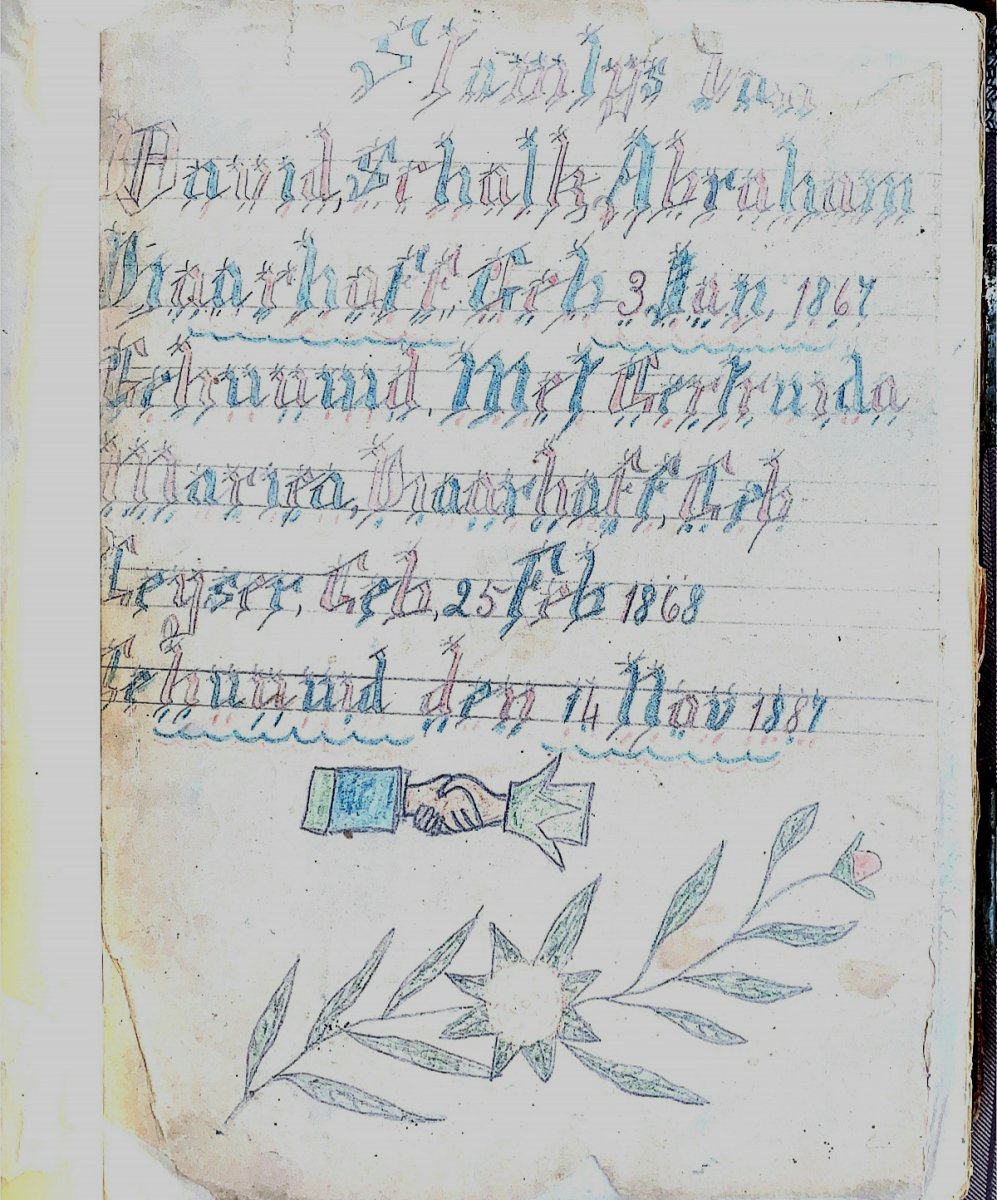 S Familys Van
Dawid, Schalk, Abraham
Naarhoff, Geb 3 Jan, 1867
Gehuuwd, Met Gertruida
Maria, Naarhoff, Geb
Leyser, Geb, 25 Feb 1868
Gehuuwd den 14 Nov 1887